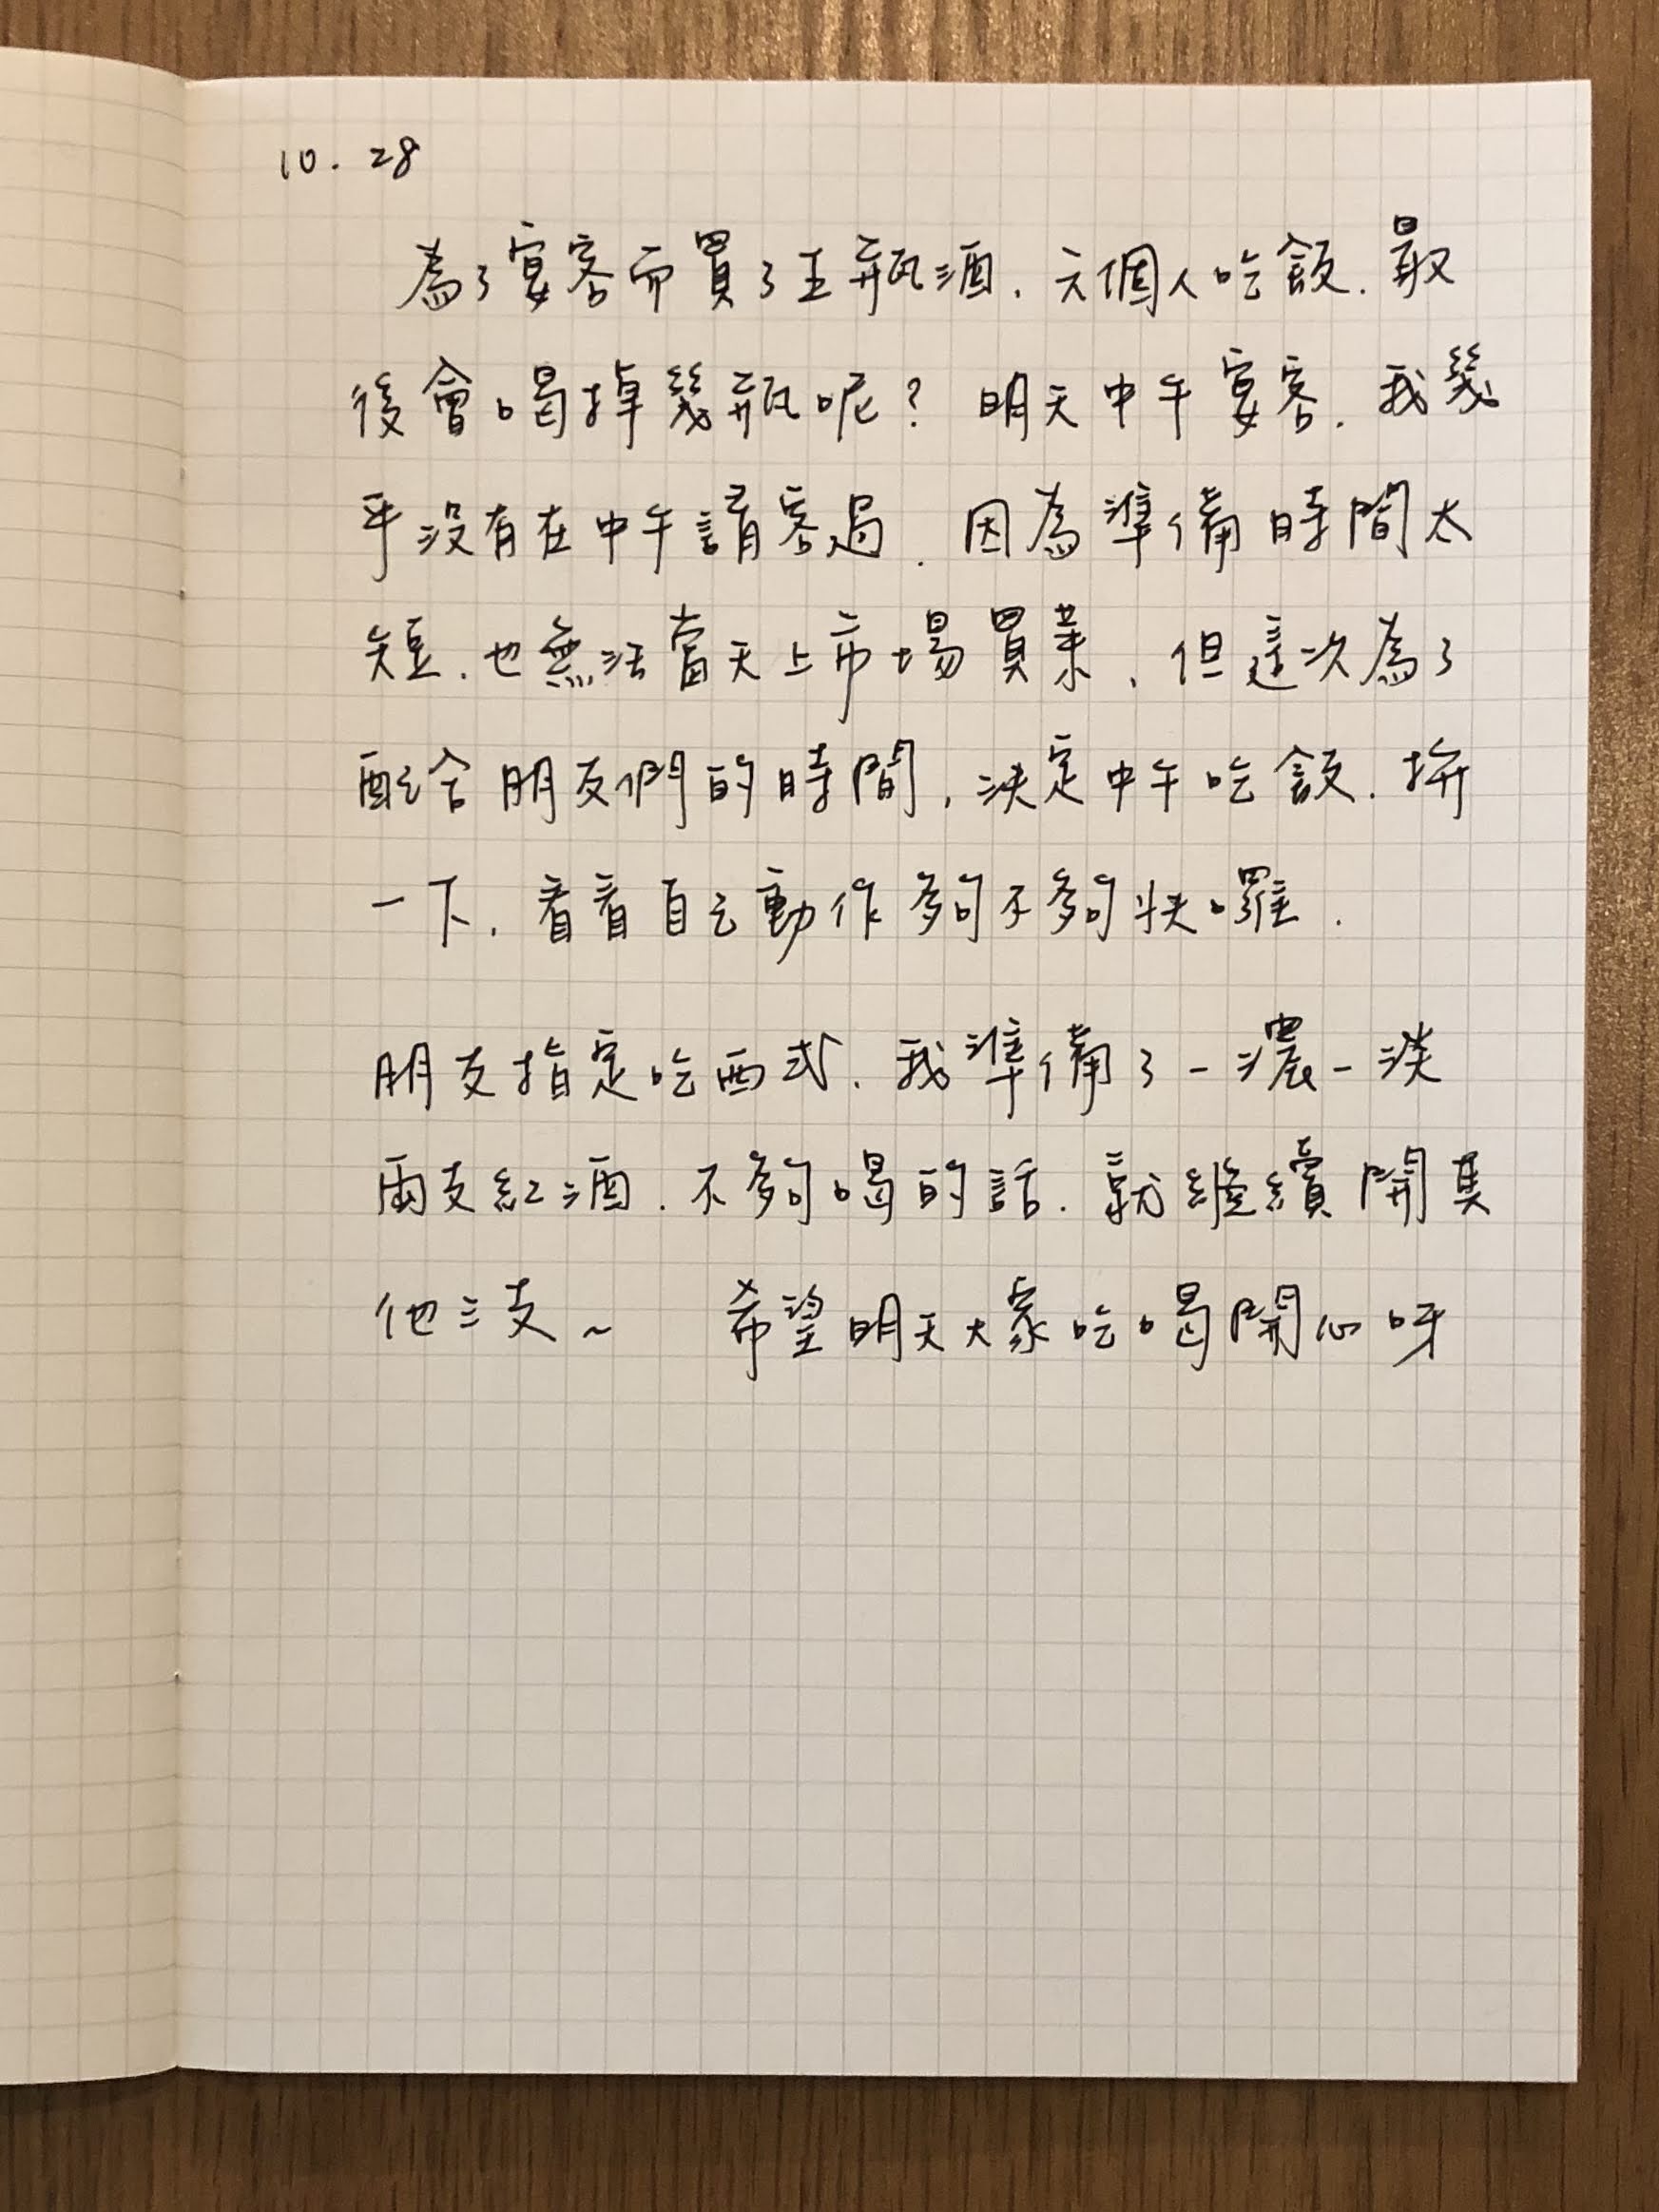 10.28
為了宴客而買了五瓶酒.六個人吃飯.最
後會喝掉幾瓶呢？明天中午宴客.我幾
乎沒有在中午請客過.因為準備時間太
短.也無法當天上市場買菜.但這次為了
配合朋友們的時間.決定中午吃飯.拚
一下.看看自己動作夠不夠快囉.
朋友指定吃西式.我準備了一濃一淡
兩支紅酒.不夠喝的話.就繼續開其
他三支~ 希望明天大家吃喝開心呀